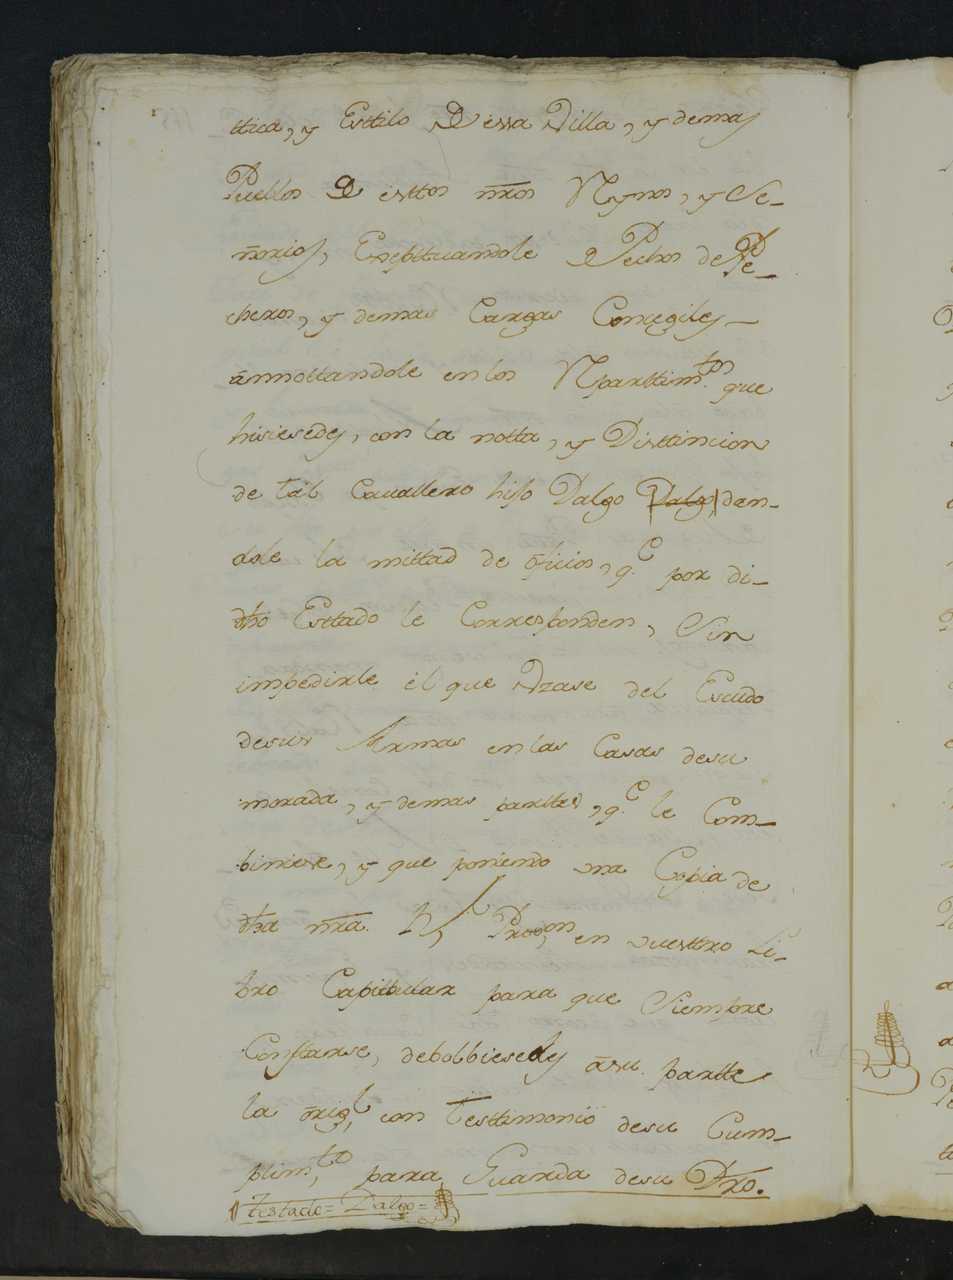 ttica, y Esttilo D essa Villa, y demas
Pueblos D esttos nr̃os Rynos, y Se-
ñorios, Eseptuandole D Pechos de Pe-
cheros, y demas Cargas Concegiles
annottandole en los Reparttimtos. que
hisiesedes, con la notta, y Disttincion
de tál Cavallero hijo Dalgo Dalgo, dan-
dole la mittad de oficios, q.e por di-
dho Esttado le Corresponden, Sin
impedirle el que Vzase del Escudo
desus Armas en las Casas desu
morada, y demas parttes, q.e le Com-
biniese, y que poniendo una Copia de
dha nr̃a. R, Prov.on, en vuesttro Li-
bro Capitular para que Siempre
Constarse, debolbiesedes ásu partte
la orig.l, con Testtimonio desu Cum-
plim.to, para Guarda desu Dr̃o.
testado= Dalgo=